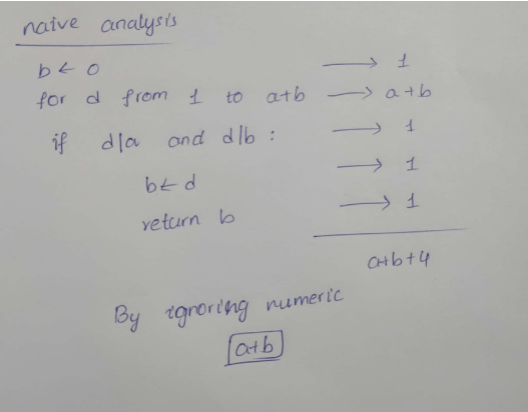 naive analysis
b ← 0 → 1
for d from 1 to a+b → a+b
if d|a and d|b : → 1
b ← d → 1
return b → 1
a+b+4
By ignoring numeric
a+b